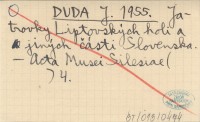 DUDA J. 1955. Ja-
trovky Liptovských holí a
jiných částí Slovenska.
- Acta Musei Silesiae (
) 4.
BI/019/0494